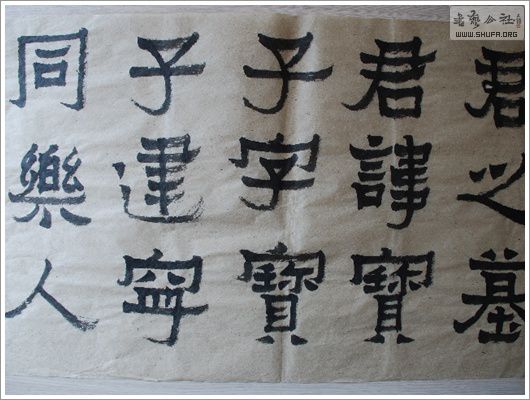 君之墓
君諱寶
子字寶
子建寧
同樂人
書藝公社
WWW.SHUFA.ORG